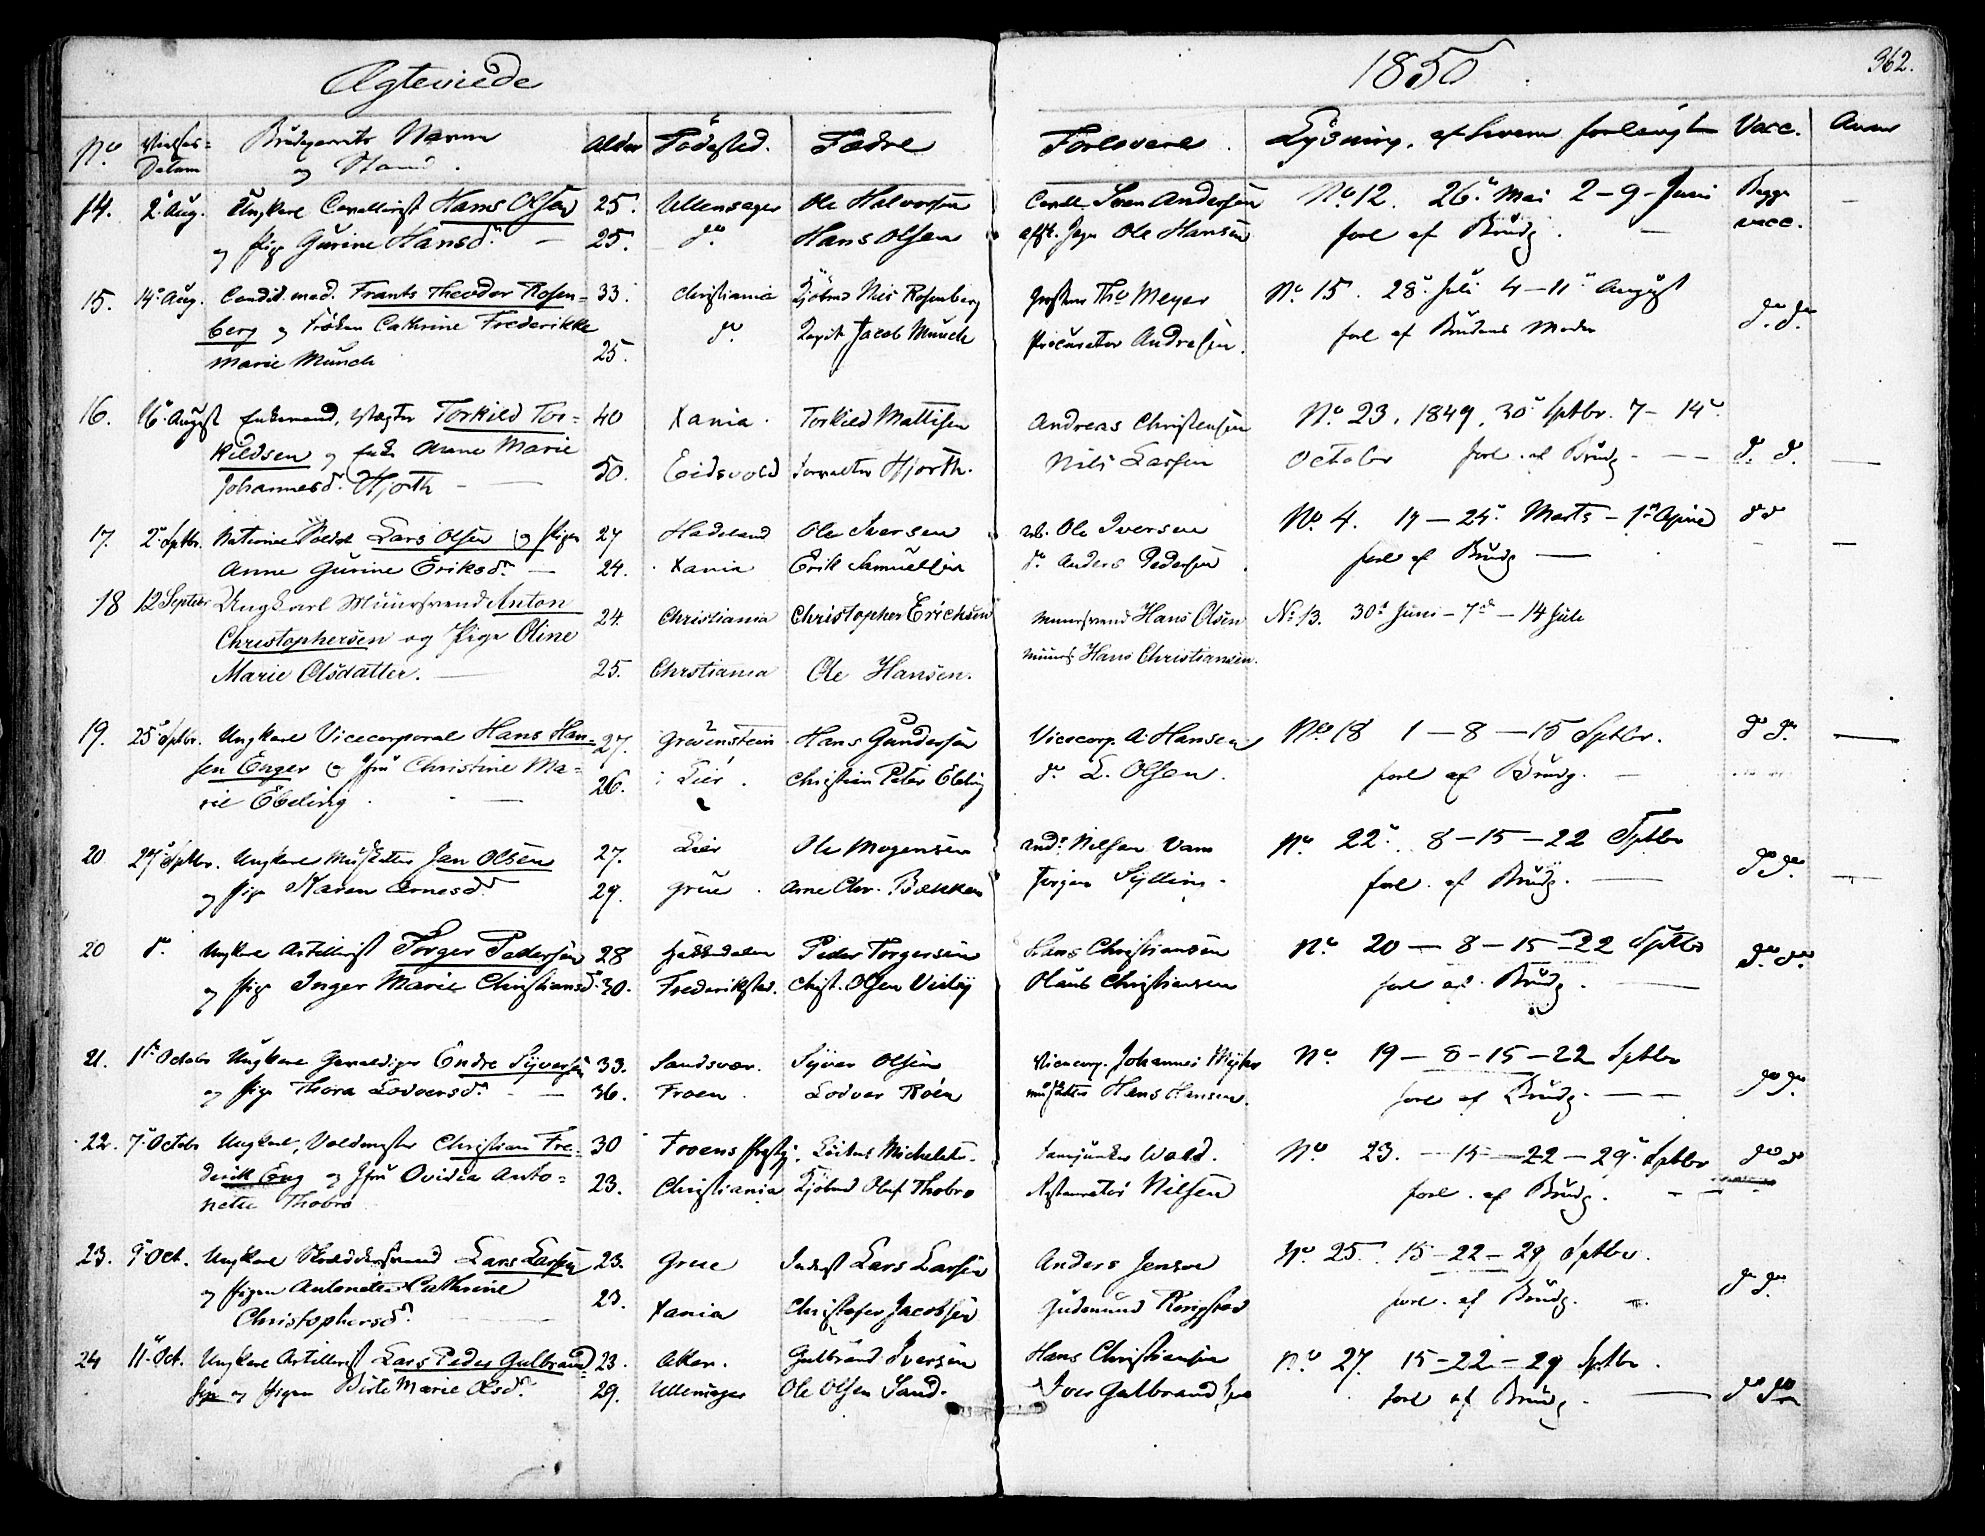 Ægteviede 1850 362.
No Vielses= Datum Brudgommens Navn og Stand Alder Födested. Fædre Forlovere. Lysning, af hvem forlangt Vacc. Anm
14. 2 Aug. Ungkarl Cavallerist Hans Olsen 25. Ullensager Ole Halvorsen Cavall. Sven Andersen No 12. 26 Mai 2-9-Juni Begge
og Pige Gurine Hansd. 25. do. Hans Olsen Ole Hansen forl af Brudg. vacc.
15. 14 Aug. Candid. med. Frants Theodor Rosen= 33. Christiania Kjöbmd Nis Rosenberg Ths Meyer No 15. 28 Juli 4-11 August
berg og Fröken Cathrine Frederikke do. Capit Jacob Munch Procurator Andresen. forl af Brudens Moder do. do.
Marie Munch 25.
16. 16 August Enkemand, Torkild Tor= 40 Xania. Torkild Mattisen Andreas Christensen No. 23, 1849, 30 Sptbr. 7-14
kildsen og Enke Anne Marie 50. Eidsvold Hjorth. Nils Larsen October forl. af Brudg. do. do.
Johannesd. Hjorth
17. 2 Sptbr. National Soldat Lars Olsen og Pigen 27 Hadeland Ole Iversen Ole Iversen No. 4. 17-24 Marts-1ste April do do
Anne Gurine Eriksd. 24. Xania Erik Samuelsen do. Anders Pedersen forl af Brudg
18 12 Septbr Ungkarl Muursvend Anton 24. Christiania Christopher Erichsen Muursvend Hans Olsen No 13. 30te Juni-7de-14 Juli
Christophersen og Pige Oline
Marie Olsdatter. 25. Christiania Ole Hansen. Muurs. Hans Christiansen.
19. 25 Sptbr. Ungkarl Vicecorporal Hans Han= 27. Grevenstein Hans Gundersen Vicecorp. A. Hansen No 18 1-8-15 Sptbr. do do.
sen Enger og Jfru Christine Ma= 26. Lier. Christian Peter Ebeling do L. Olsen. forl af Brudg.
rie Ebeling.
20 27 Sptbr. Ungkarl Musketer Jan Olsen 27. Lier Ole Mogensen Nilsen No 22. 8-15-22 Sptbr
og Pige Karen Arnesd. 29. Grue. Arne Chr. Bækken Jörgen Sylling. forl. af Brudg. do do.
20 do. Ungkarl Artillerist Torger Pedersen 28 Peder Torgersen Hans Christiansen No 20-8-15-22 Sptbr do. do.
og Pige Inger Marie Christiansd. 30. Frederikstad. Christ. Olsen Visby Olaus Christiansen forl af Brudg.
21. 1ste Octobr Ungkarl Gevaldiger Endre Syversen 33. Sandsvær. Syver Olsen Vicecorp. Johannes No 19-8-15-22 Sptbr
og Pige Thora Lodversd. 36. Froen. Lodver Roen Musketer Hans Hansen. forl af Brudg. do do.
22. 7 Octobr Ungkarl, Christian Fre= 30 Froens Prstgj. Michelsen. Wold. No 23.-15-22-29 Sptbr do do
derik Eng og Jfru Ovidia Anto= 23. Christiania Kjöbmd Oluf Thobro Restauratör Nilsen forl. af Brudg.
nette Thobro
23. 9 Oct. Ungkarl Skræddersvend Lars Larsen 23. Grue Inderst Lars Larsen Anders Jensen No 25. 15-22-29 Sptbr.
og Pigen Antonette Cathrine 23. Xania Christofer Jacobsen Gudmund forl. af Brudg. do do.
Christophersd.
24 11 Oct. Ungkarl Artillerist Lars Peder Gulbrand= 23. Aker. Gulbrand Iversen Hans Christiansen No. 27. 15-22-29 Sptbr.
sen og Pigen Birte Marie Olsd. 29. Ullensager Ole Olsen Sand. Iver Gulbrandsen forl af Brudg. do do